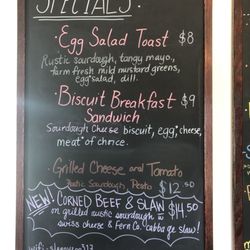 SPECIALS
· Egg Salad Toast $8
Rustic sourdough, tangy mayo,
farm fresh mild mustard greens,
egg salad, dill.
· Biscuit Breakfast $9
Sandwich
Sourdough Cheese biscuit, egg, cheese,
meat of choice.
Grilled Cheese and Tomato
Rustic Sourdough Pesto $12.50
NEW! CORNED BEEF & SLAW $14.50
on grilled rustic sourdough w
swiss cheese & Fern Co. cabbage slaw!
wifi-